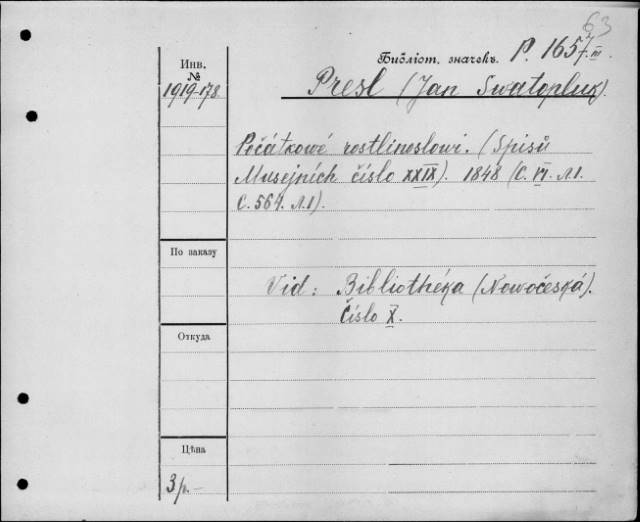 63
Библіот. значекъ. P. 1657.III
Инв.
№
1919-178.
Presl (Jan Swatopluk).
Počátkowé rostlinoslowí. (Spisů
Musejních číslo XXIX). 1848 (C. VI. л.1.
C. 564. л.1).
По заказу
Vid: Bibliothéka (Nowočeská).
Číslo X.
Откуда
Цѣна
3 р.-